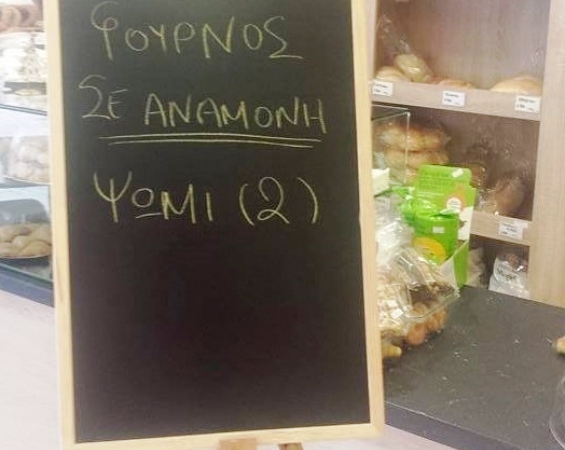 ΦΟΥΡΝΟΣ
ΣΕ ΑΝΑΜΟΝΗ
ΨΩΜΙ (2)